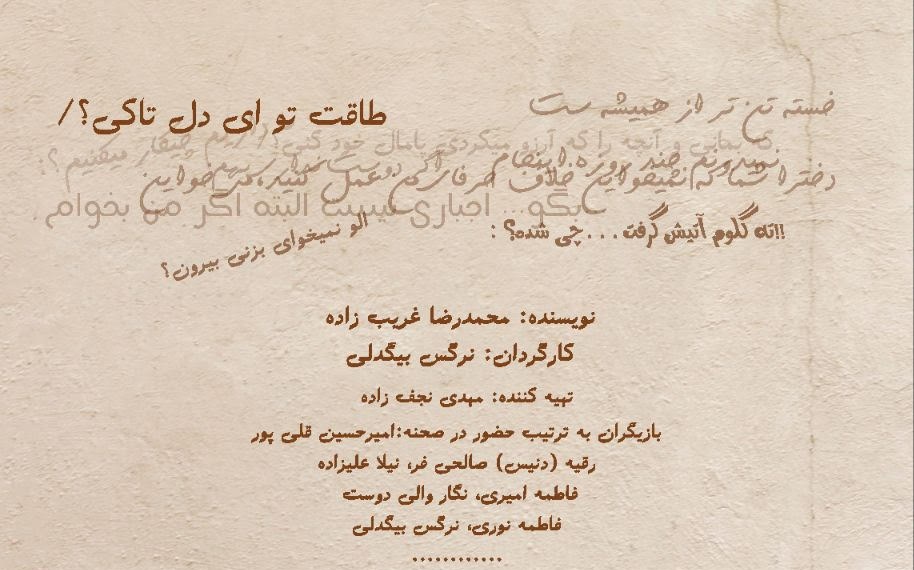 خسته تن تر از همیشه ست
طاقت تو ای دل تاکی؟/
که بمانی و آنچه را که آرزو میکردی پامال خود کنی؟/
نمیدونم چند روزه.اینجام
دختر شما که نمیخواین خلاف حرفای من عمل کنید،می‌خواین
بگو... اجباری نیست البته اگر من بخوام
!!اته گلوم آتیش گرفت...چی شده؟ :
الو نمیخوای بزنی بیرون؟
نویسنده: محمدرضا غریب زاده
کارگردان: نرگس بیگدلی
تهیه کننده: مهدی نجف زاده
بازیگران به ترتیب حضور در صحنه:امیرحسین قلی پور
رقیه (دنیس) صالحی فر، نیلا علیزاده
فاطمه امیری، نگار والی دوست
فاطمه نوری، نرگس بیگدلی
............